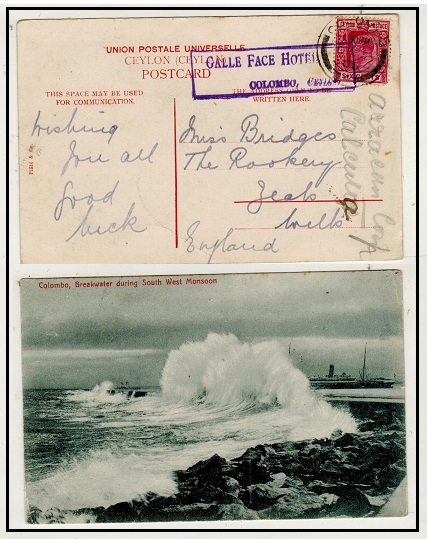 UNION POSTALE UNIVERSELLE.
CEYLON (CEYLAN)
POSTCARD
GALLE FACE HOTEL
COLOMBO, CEYLON
THIS SPACE MAY BE USED
FOR COMMUNICATION.
THE ADDRESS ONLY TO BE
WRITTEN HERE.
Wishing
you all
good
luck
Miss Bridges
The Rookery
Wells
England
Calcutta
Colombo, Breakwater during South West Monsoon